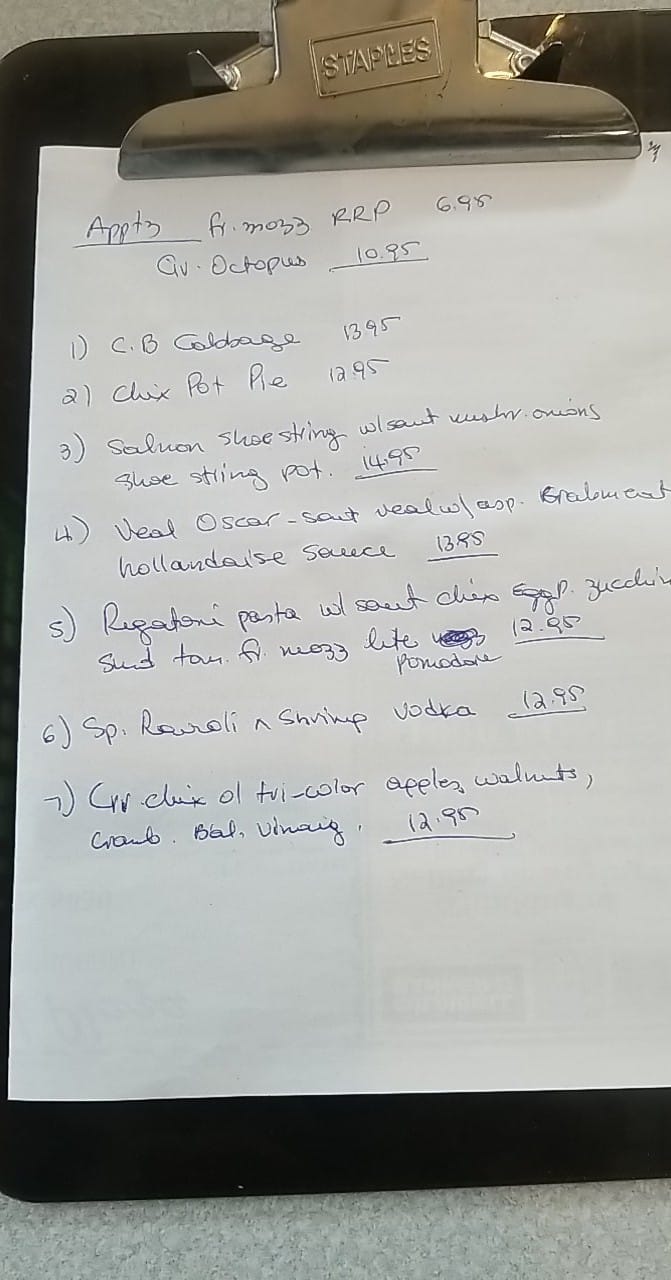 STAPLES
Appts fr. mozz RRP 6.95
Gr. Octopus 10.95
1) C.B Cabbage 13.95
2) Chix Pot Pie 12.95
3) Salmon Shoestring w/ saut mushr. onions
Shoe string pot. 14.95
4) Veal Oscar - saut veal w/ asp. Crabmeat
hollandaise Sauce 13.95
5) Rigatoni pasta w/ saut chix Eggp. zucchin
Sund tom. fr. mozz lite 12.95
Pomodore
6) Sp. Ravoli n Shrimp Vodka 12.95
7) Grr. chix o/ tri-color apples, walnuts,
Cranb. Bal. Vinaig. 12.95